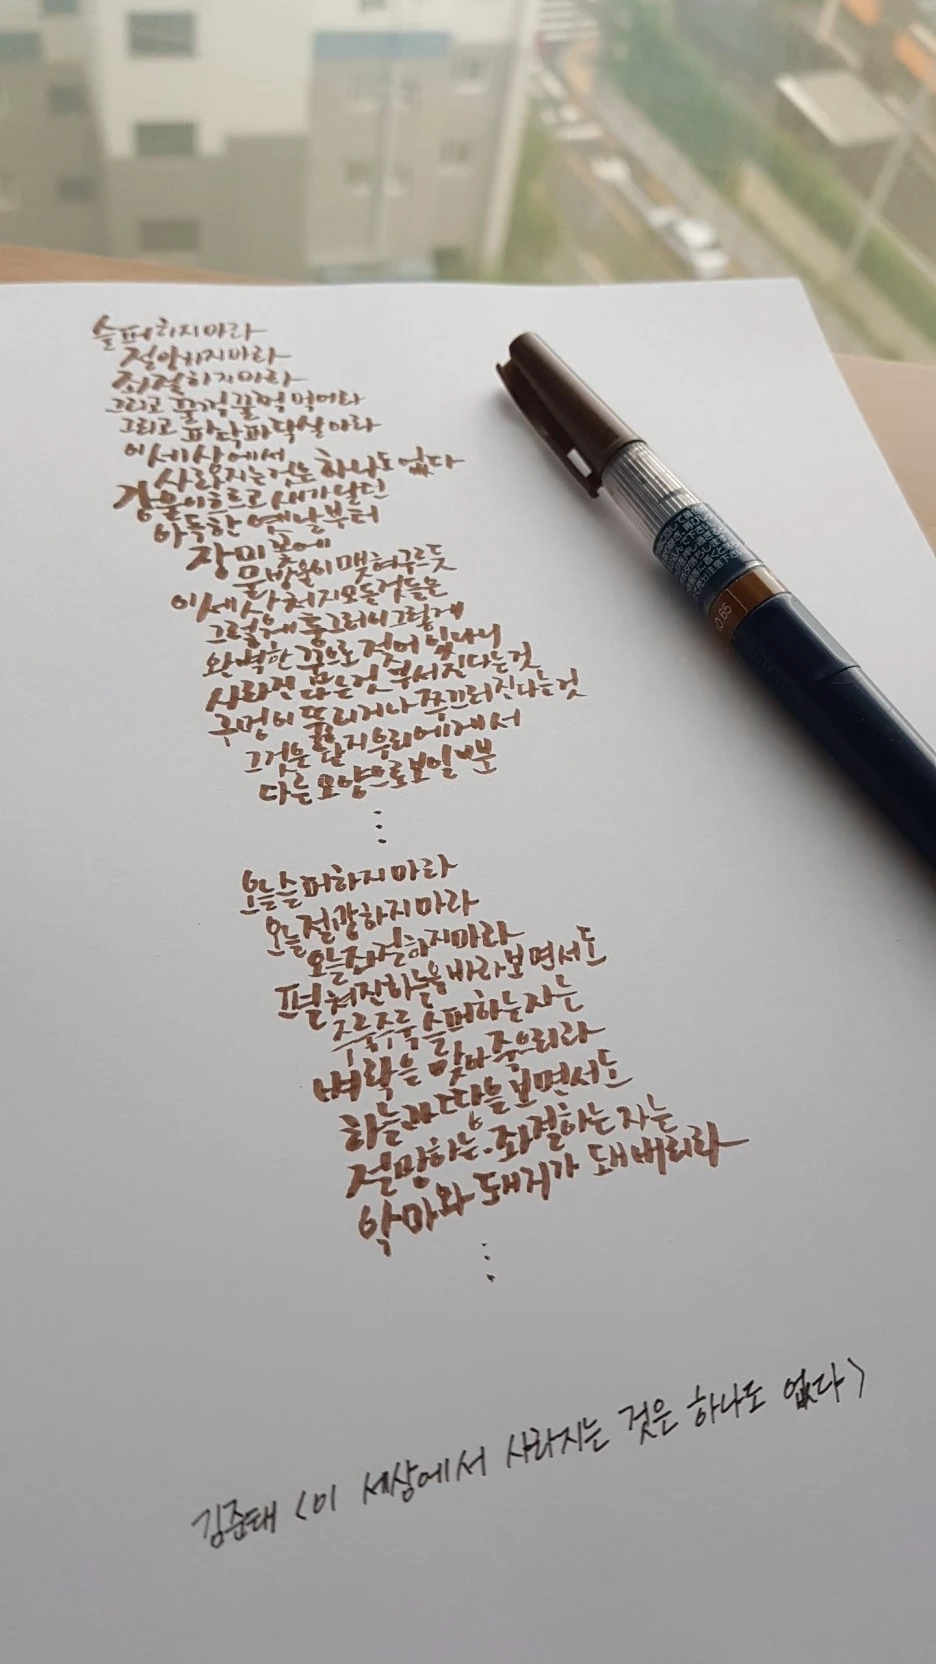 슬퍼하지마라
절망하지마라
좌절하지마라
그리고 꿀꺽꿀꺽 먹어라
그리고 파닥파닥살아라
이세상에서
사라지는것은 하나도 없다
강물이흐르고 새가날던
아득한 옛날부터
장미꽃에
물방울이맺혀구르듯
이세상천지모든것들은
그렇게 둥그러이그렇게
완벽한 꿈으로 젖어 있나니
사라진다는것 부서진다는것
구멍이 뚫리거나 쭈그러진다는것
그것은 단지우리에게서
다른모양으로보일뿐
⋮
오늘슬퍼하지마라
오늘절망하지마라
오늘좌절하지마라
펼쳐진하늘을바라보면서도
주룩주룩슬퍼하는자는
벼락을 맞아죽으리라
하늘과땅을보면서도
절망하는.좌절하는자는
악마와 돼지가 돼버리라
⋮
김준태 〈이 세상에서 사라지는 것은 하나도 없다〉